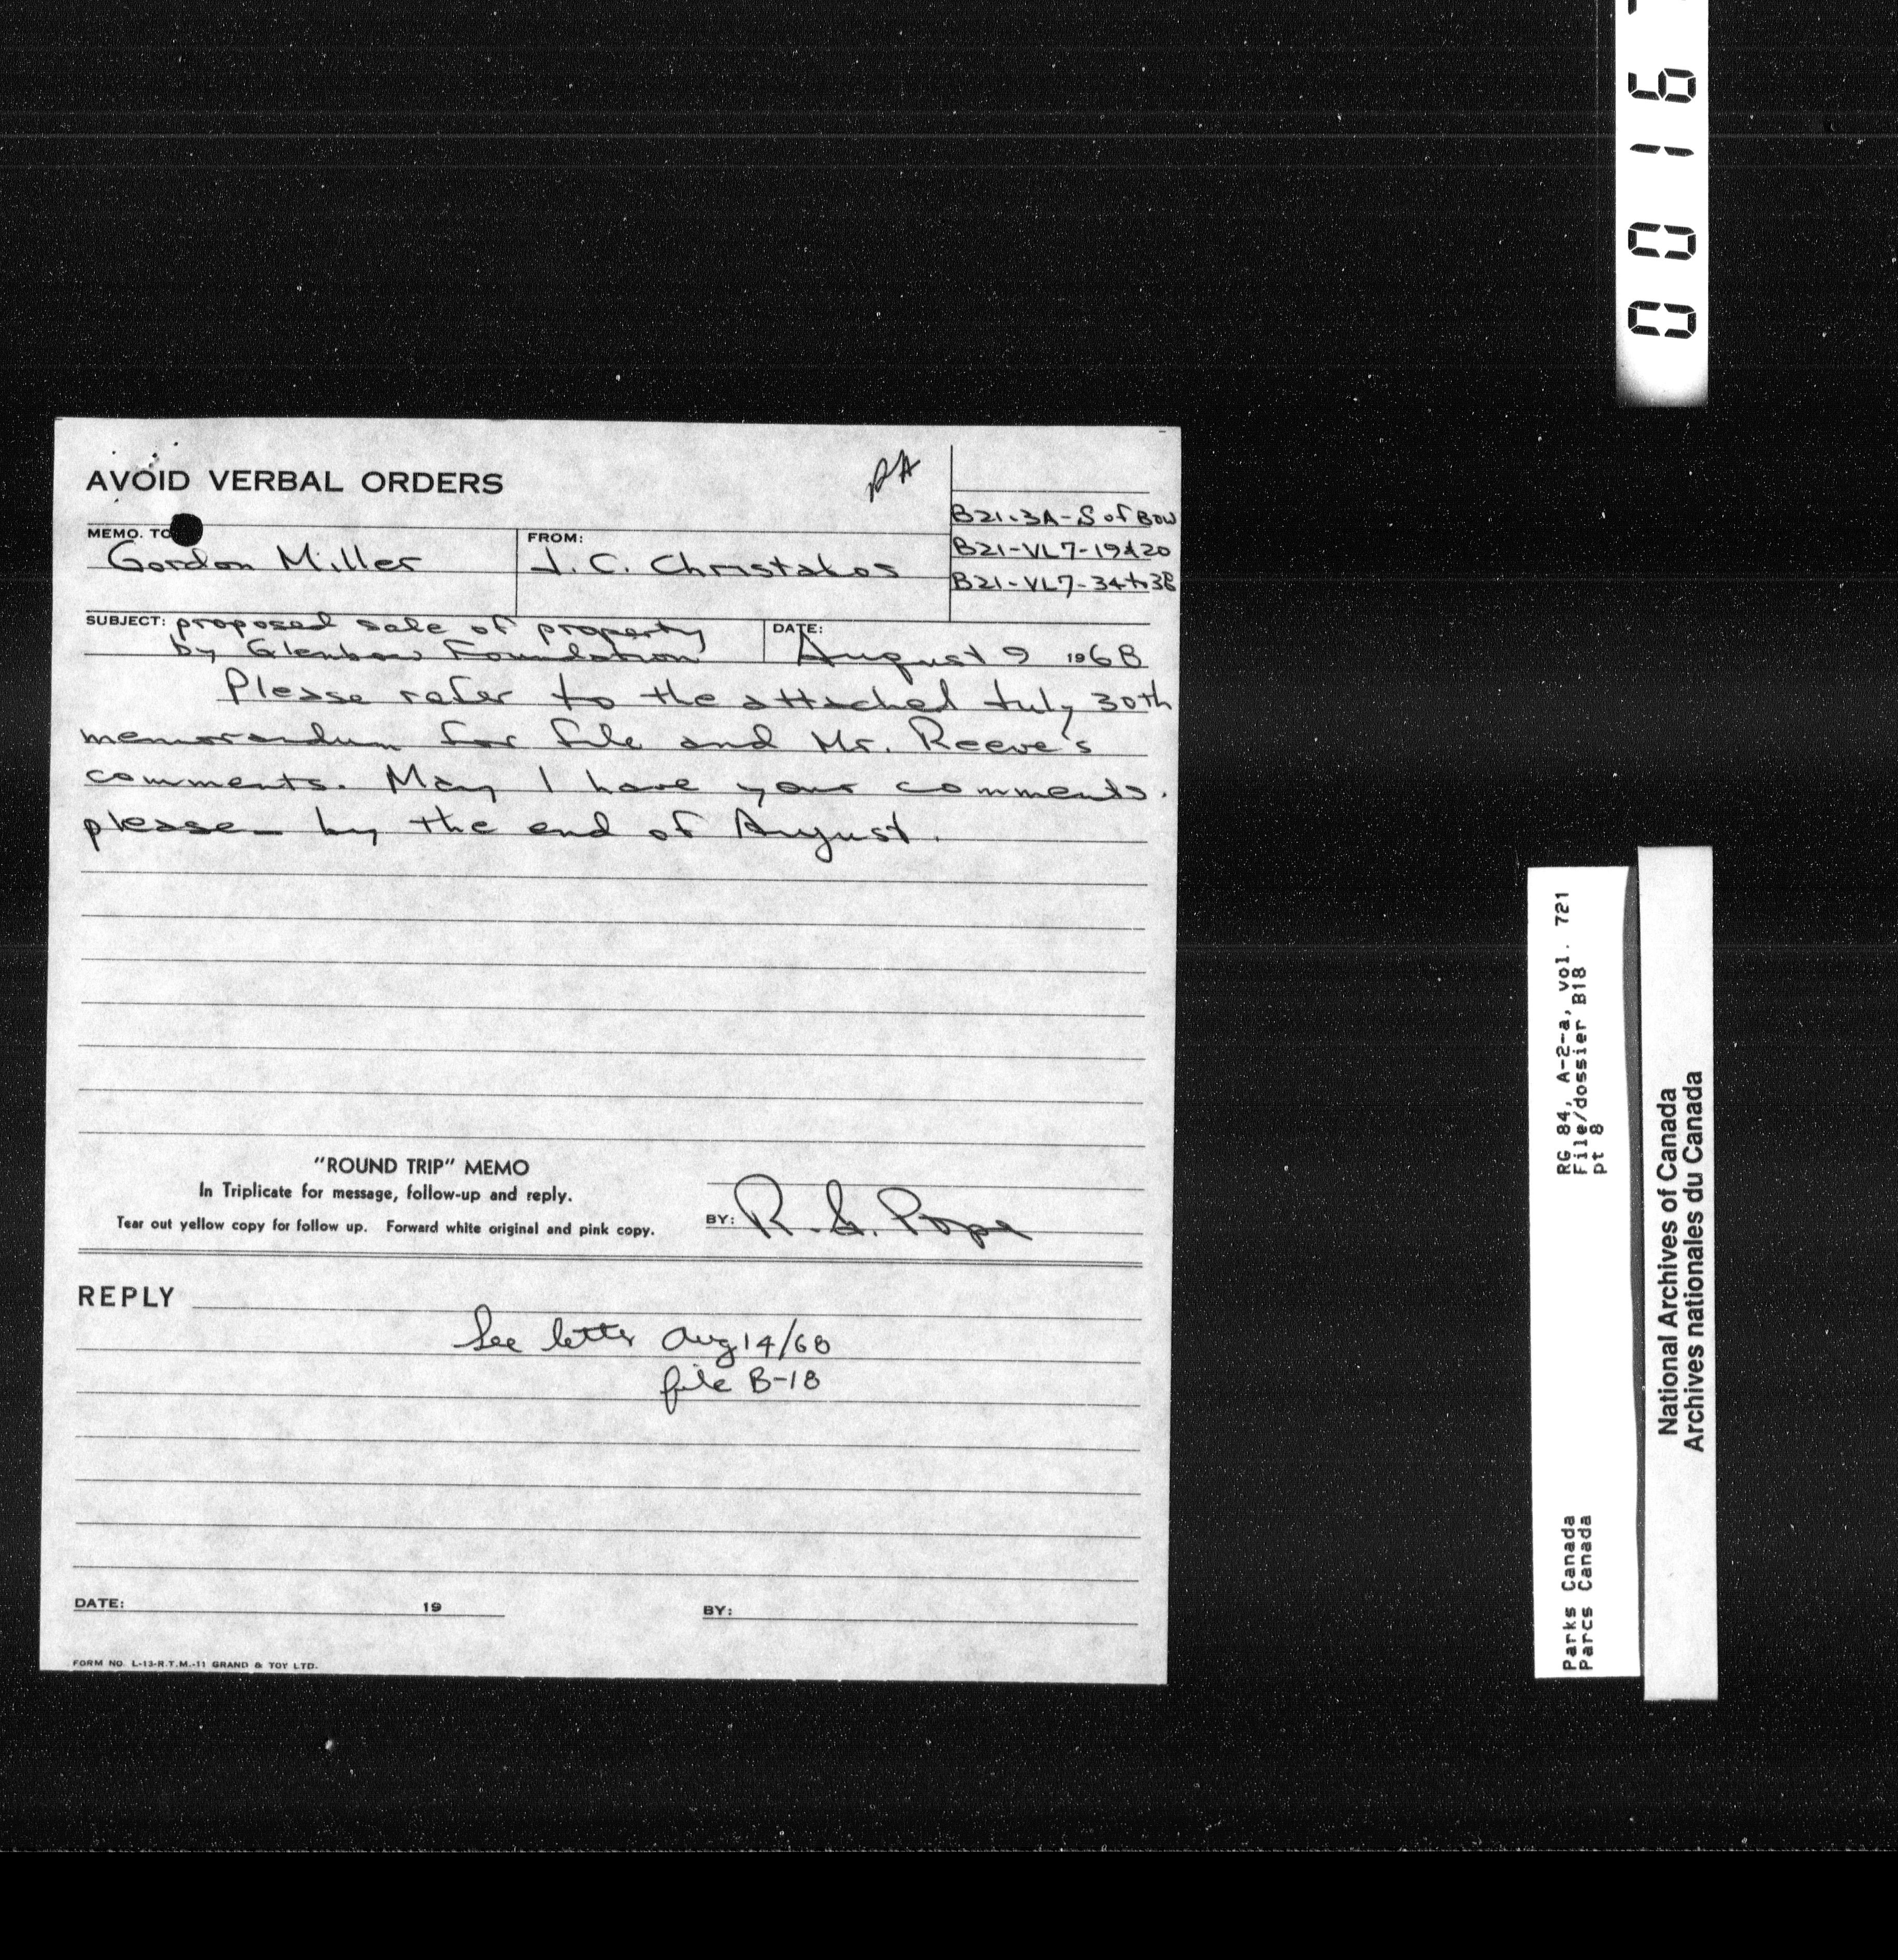 AVOID VERBAL ORDERS
PA
B21-3A-S of Bow
B21-VL7-19&20
B21-VL7-34to38
MEMO. TO
Gordon Miller
FROM:
J. C. Christakos
SUBJECT: proposed sale of property
by Glenbow Foundation
DATE:
August 9 1968
Please refer to the attached July 30th
memorandum for file and Mr. Reeve's
comments. May I have your comments.
please by the end of August.
"ROUND TRIP" MEMO
In Triplicate for message, follow-up and reply.
Tear out yellow copy for follow up. Forward white original and pink copy.
BY: R. G. Pope
REPLY
See letter Aug 14/68
file B-18
DATE: 19
BY:
FORM NO. L-13-R.T.M.-11 GRAND & TOY LTD.
0016
RG 84, A-2-a, vol. 721
File/dossier B18
pt 8
Parks Canada
Parcs Canada
National Archives of Canada
Archives nationales du Canada